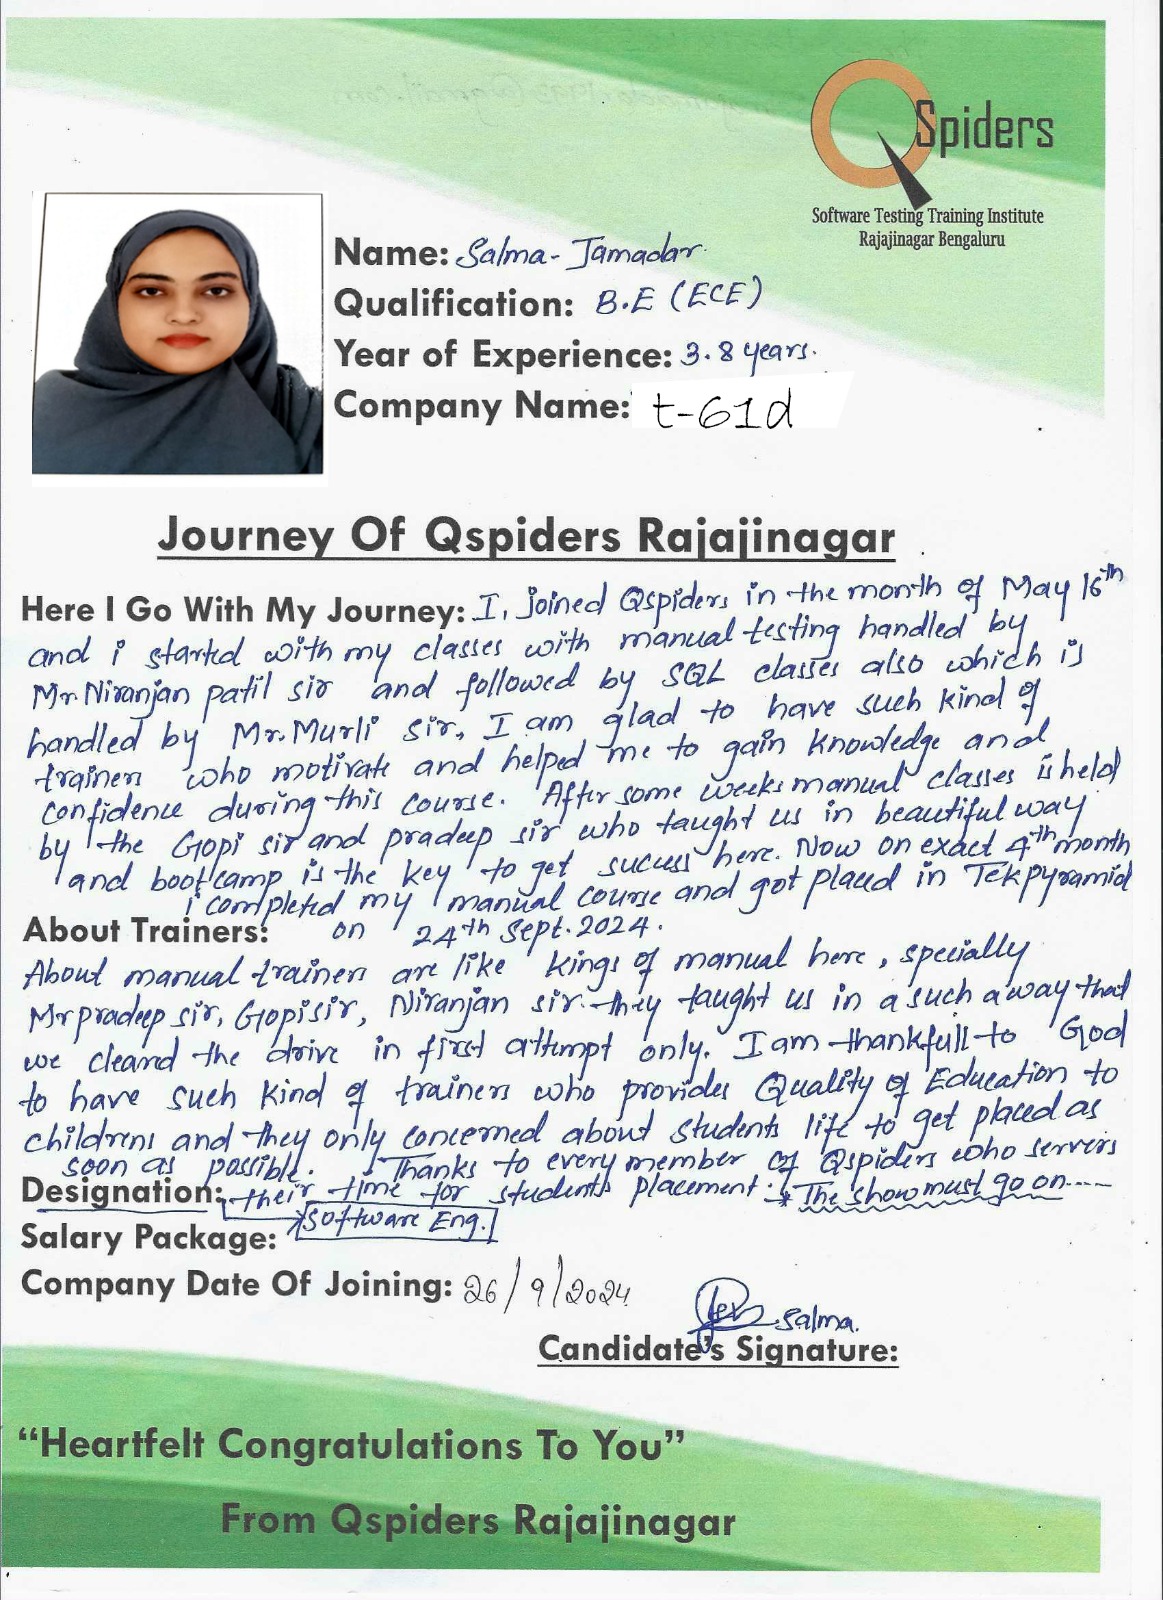 QSpiders
Software Testing Training Institute
Rajajinagar Bengaluru
Name: Salma- Jamadar.
Qualification: B.E (ECE)
Year of Experience: 3.8 years.
Company Name: t-61d
Journey Of Qspiders Rajajinagar
Here I Go With My Journey: I, joined Qspiders in the month of May 16th
and i started with my classes with manual testing handled by
Mr. Niranjan patil sir and followed by SQL classes also which is
handled by Mr. Murli sir, I am glad to have such kind of
trainers who motivate and helped me to gain knowledge and
confidence during this course. After some weeks manual classes is held
by the Gopi sir and pradeep sir who taught us in beautiful way
and bootcamp is the key to get sucess here. Now on exact 4th month
i completed my manual course and got placed in Tekpyramid
About Trainers: on 24th Sept. 2024.
About manual trainers are like kings of manual here, specially
Mr pradeep sir, Gopi sir, Niranjan sir they taught us in a such a way that
we cleard the drive in first attempt only. I am thankfull to God
to have such kind of trainers who provides Quality of Education to
childrens and they only concerned about students life to get placed as
soon as possible. Thanks to every member of Qspiders who servers
Designation: their time for students placement. The show must go on----
Software Eng.
Salary Package:
Company Date Of Joining: 26/9/2024
Salma.
Candidate's Signature:
“Heartfelt Congratulations To You”
From Qspiders Rajajinagar